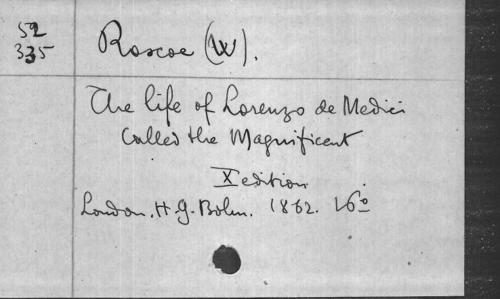 52
335
Roscoe (W).
The life of Lorenzo de Medici
called the Magnificent
X edition
London. H. G. Bohn. 1862. 16º